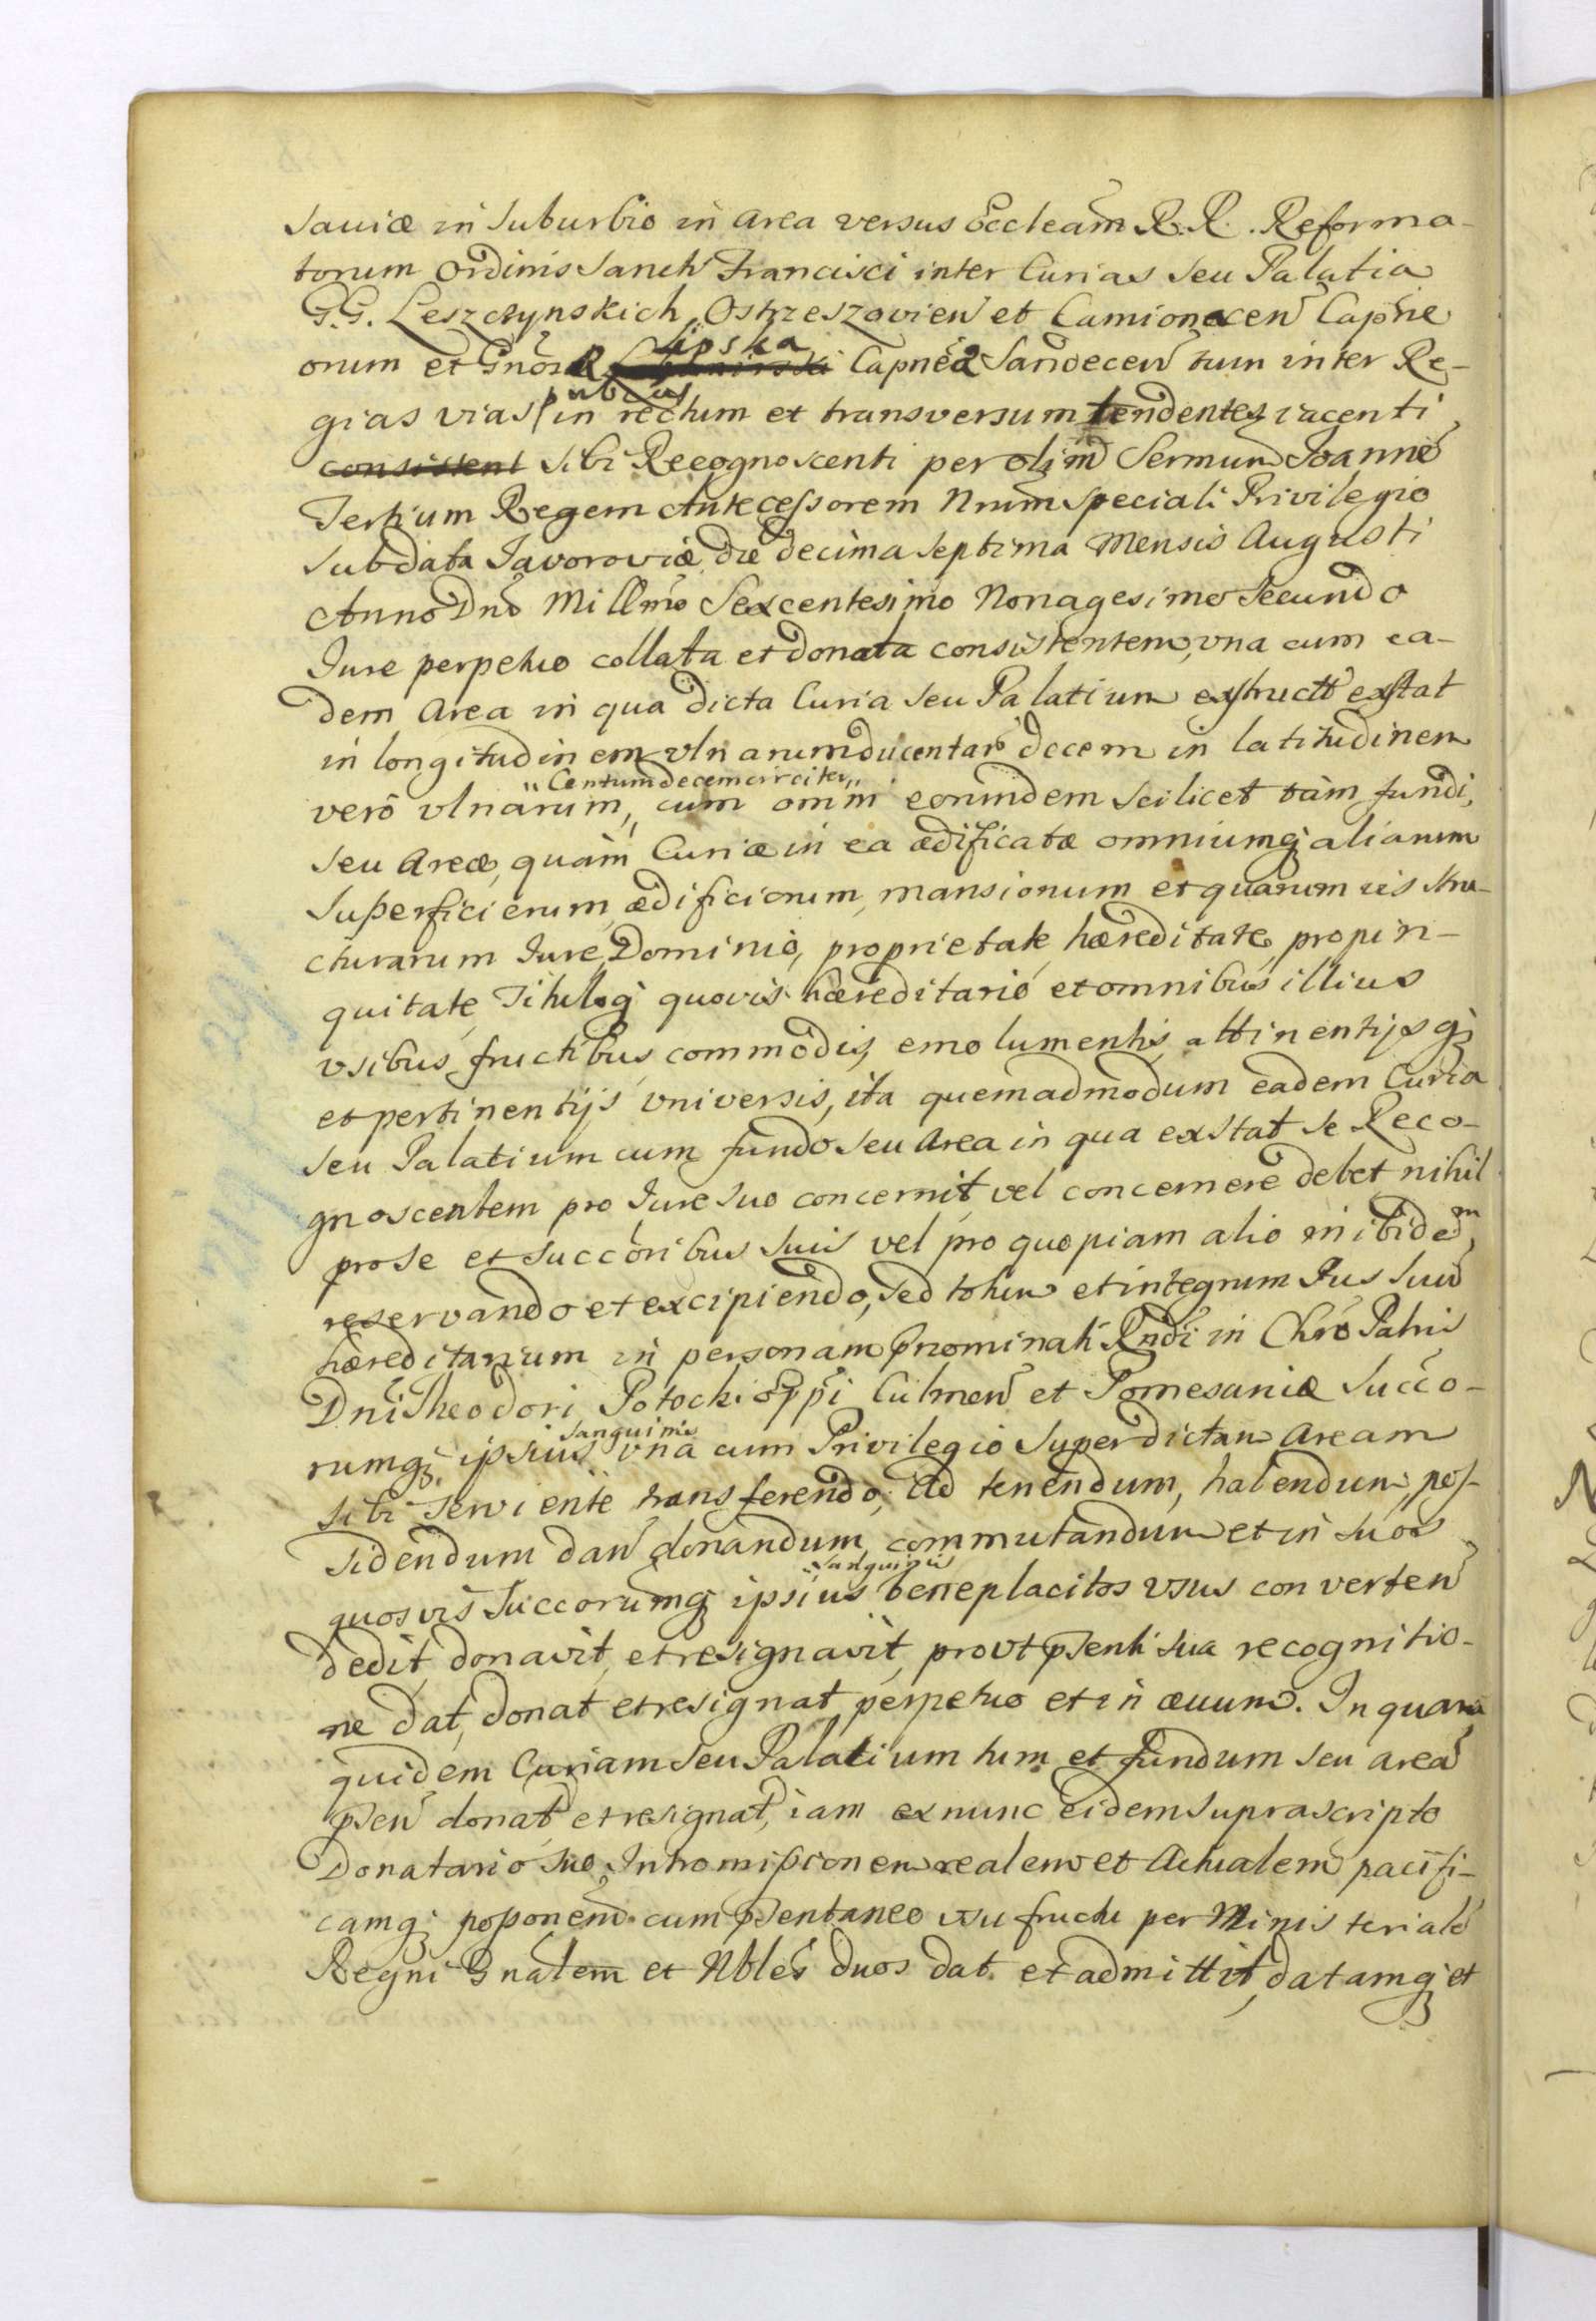 saviæ in Suburbio in Area versus Eccleam R.R. Reforma-
torum Ordinis Sancti Francisci inter Curias seu Palatia
G.G. Leszczynskich Ostrzeszovien et Camionacen Capne
lipska
orum et Gnos Capnea Sandecen tum inter Re-
publicas
gias vias in rectum et transversum tendentes iacenti
consistent sibi Recognoscenti per olim Sermum Joanne
Tertium Regem Antecessorem Nrum speciali Privilegio
sub data Javoroviæ die decima septima Mensis Augusti
Anno Dno Millmo Sexcentesimo Nonagesimo Secundo
Jure perpetuo collata et donata consistentem, vna cum ea-
dem Area in qua dicta Curia seu Palatium exstructu exstat
in longitudinem vlnarum ducentaru decem in latitudinem
"Centum decem circiter"
verò vlnarum, cum omni eorundem scilicet tàm fundi,
seu Areæ, quàm Curiæ in ea ædificatæ omniumq; aliarum
superficierum, ædificiorum, mansionum et quarumvis stru-
cturarum Jure, Dominio, proprietate, hæreditate, propin-
quitate, Tituloq; quovis hæreditario et omnibus illius
vsibus, fructibus, commodis, emolumentis, attinentijsq;
et pertinentijs vniversis, ita quemadmodum eadem Curia
seu Palatium cum fundo seu Area in qua exstat se Reco-
gnoscentem pro Jure suo concernit, vel concernere debet nihil
pro se et succoribus suis vel pro quopiam alio inibidem
reservando et excipiendo, sed totum et integrum Jus suum
hæreditarium in personam prnominati Rndi in Chro Patris
Dni Theodori Potocki Eppi Culmen et Pomesaniæ Succo-
sanguinis
rumq; ipsius vna cum Privilegio superdictam Aream
sibi serviente transferendo, Ad tenendum, habendum, pos-
sidendum dan donandum, commutandum et in suos
sanguinis
quosvis Succorumq; ipsius beneplacitos vsus converten
dedit, donavit, et resignavit, provt psenti sua recognitio-
ne dat, donat et resignat perpetuo et in ævum. In quam
quidem Curiam seu Palatium tum et fundum seu area
psen donat et resignat, iam ex nunc eidem suprascripto
Donatario suo Intromissionem realem et Actualem pacifi-
camq; possonem cum psentaneo usufructu per Ministeriale
Regni Gnalem et Nbles duos dat et admittit, datamq; et